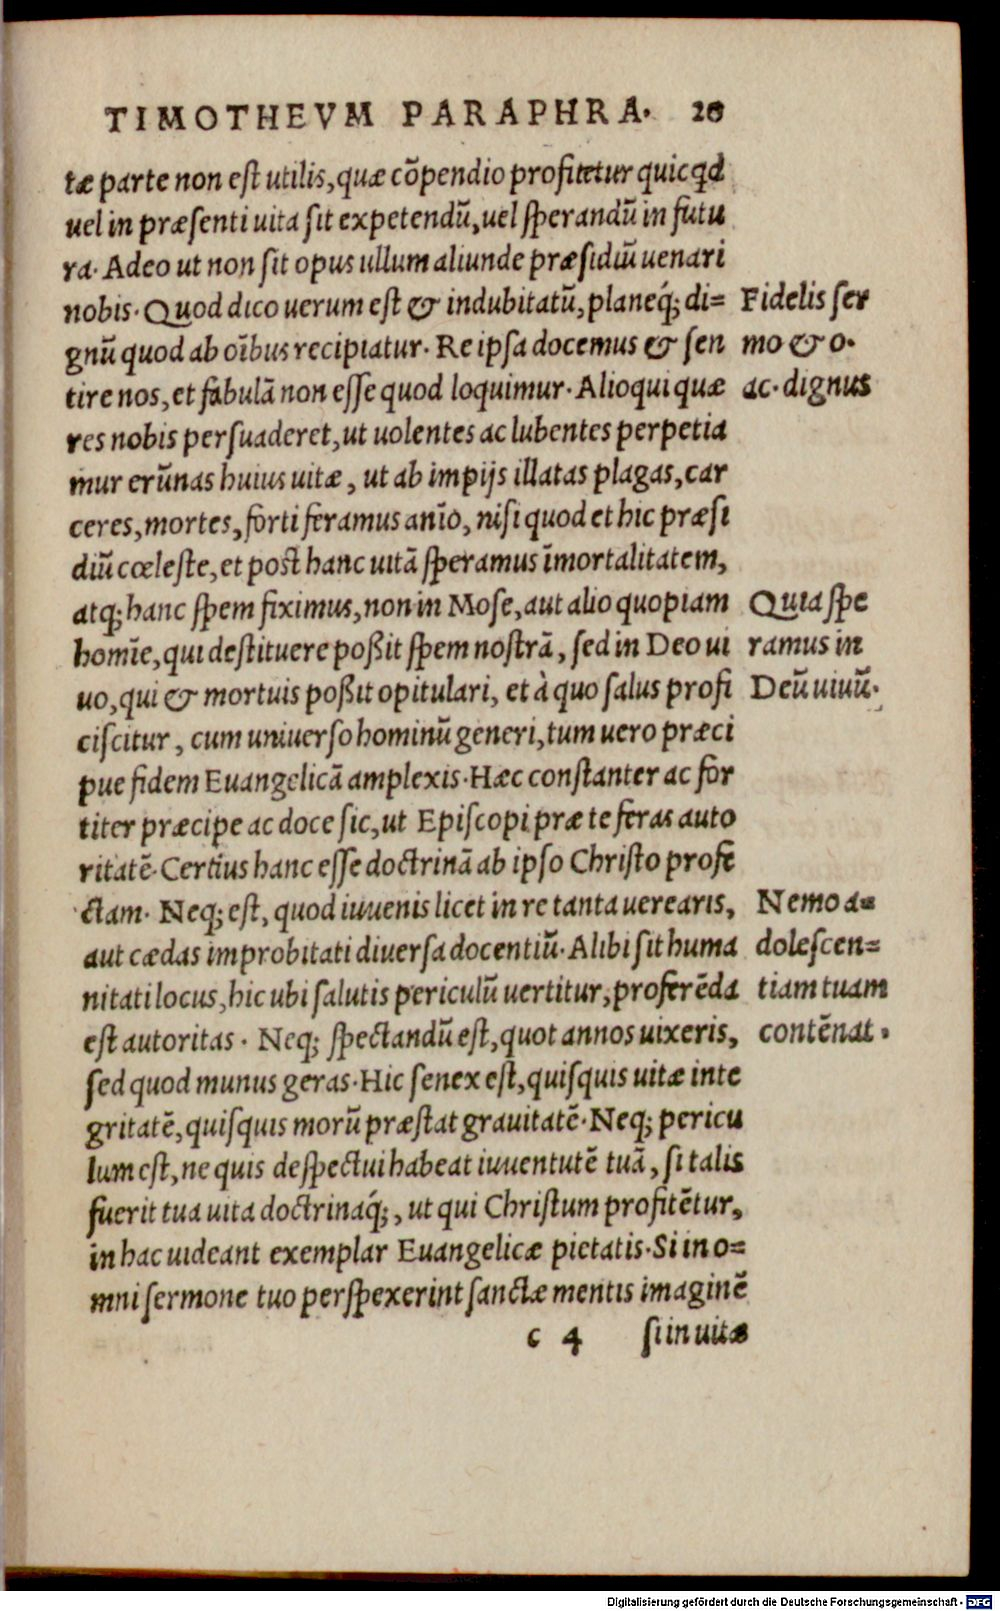 TIMOTHEVM PARAPHRA. 20
tæ parte non est utilis, quæ cõpendio profitetur quicqd
uel in præsenti uita sit expetendũ, uel sperandũ in futu
ra. Adeo ut non sit opus ullum aliunde præsidiũ uenari
nobis. Quod dico uerum est & indubitatũ, planeq́; di=
gnũ quod ab oĩbus recipiatur. Re ipsa docemus & sen
tire nos, et fabulã non esse quod loquimur. Alioqui quæ
res nobis persuaderet, ut uolentes ac lubentes perpetia
mur erũnas huius uitæ, ut ab impijs illatas plagas, car
ceres, mortes, forti feramus anĩo, nisi quod et hic præsi
diũ cœleste, et post hanc uitã speramus ĩmortalitatem,
atq; hanc spem fiximus, non in Mose, aut alio quopiam
homĩe, qui destituere poßit spem nostrã, sed in Deo ui
uo, qui & mortuis poßit opitulari, et à quo salus profi
ciscitur, cum uniuerso hominũ generi, tum uero præci
pue fidem Euangelicã amplexis. Hæc constanter ac for
titer præcipe ac doce sic, ut Episcopi præ te feras auto
ritatẽ. Certius hanc esse doctrinã ab ipso Christo profe
ctam. Neq; est, quod iuuenis licet in re tanta uerearis,
aut cædas improbitati diuersa docentiũ. Alibi sit huma
nitati locus, hic ubi salutis periculũ uertitur, proferẽda
est autoritas. Neq; spectandũ est, quot annos uixeris,
sed quod munus geras. Hic senex est, quisquis uitæ inte
gritatẽ, quisquis morũ præstat grauitatẽ. Neq; pericu
lum est, ne quis despectui habeat iuuentutẽ tuã, si talis
fuerit tua uita doctrinaq́;, ut qui Christum profitẽtur,
in hac uideant exemplar Euangelicæ pietatis. Si in o=
mni sermone tuo perspexerint sanctæ mentis imaginẽ
c 4 si in uitæ
Fidelis ser
mo & o.
ac. dignus
Quia spe
ramus in
Deũ uiuũ.
Nemo a=
dolescen=
tiam tuam
contẽnat.
Digitalisierung gefördert durch die Deutsche Forschungsgemeinschaft - DFG